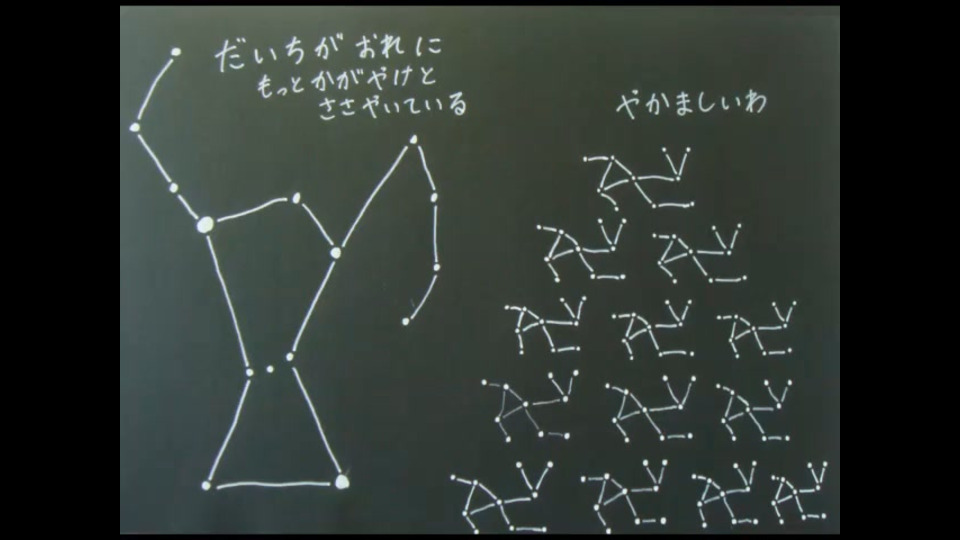 だいちがおれに
もっとかがやけと
ささやいている
やかましいわ